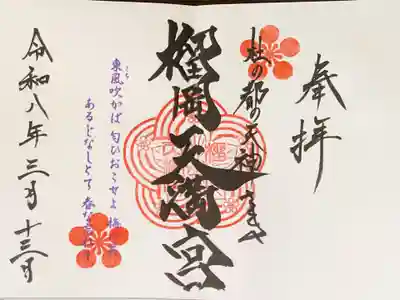 奉拝
杜の都の天神さま
榴岡天満宮
こち
東風吹かば 匂ひおこせよ 梅
あるじなしとて 春な
令和八年三月十三日